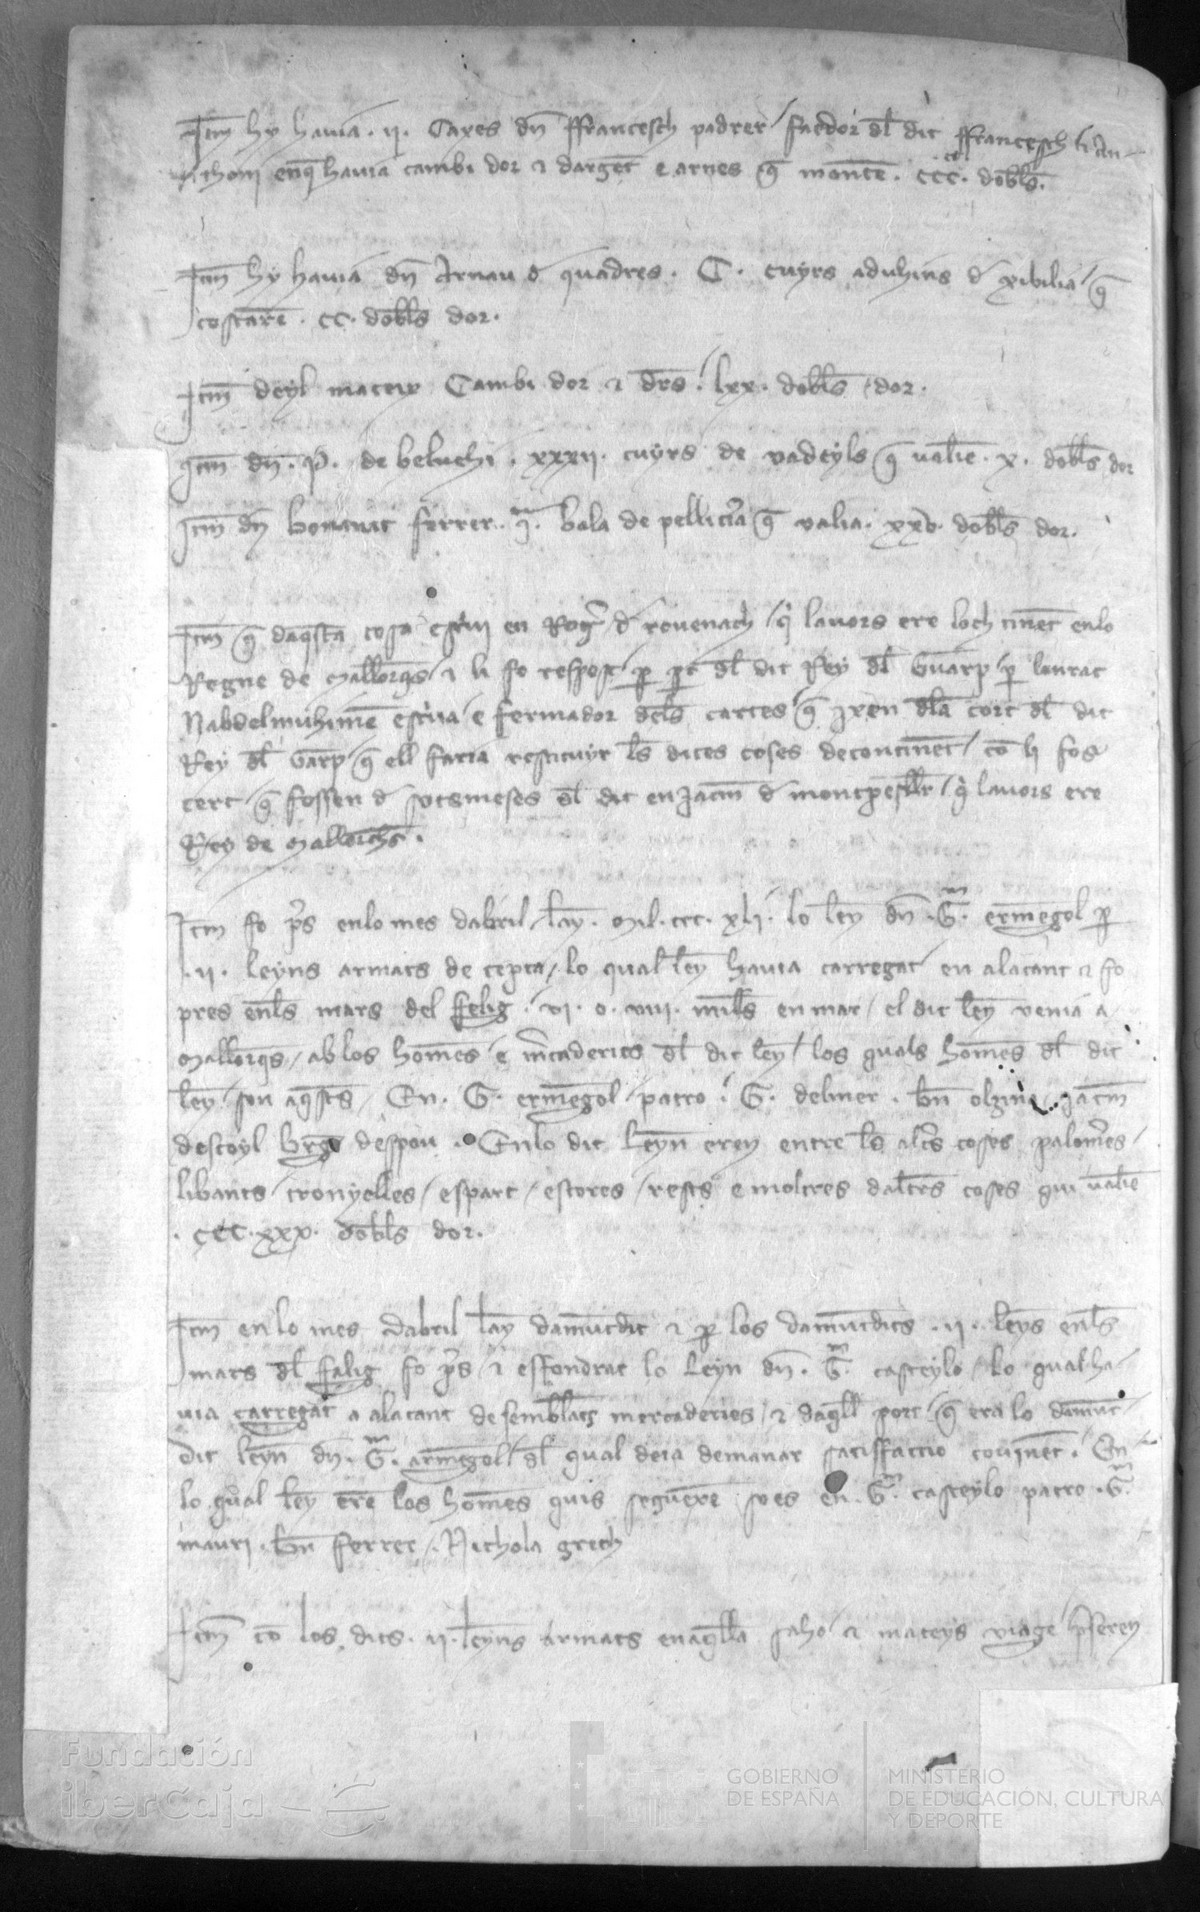 Itm hy havia .ii. Caxes dn ffrancesch padrer / factor dl dit ffrancesch
thoni enq havia cambi dor & dargēt e arnes q montē . ccc . dobls.
Itm hy havia dn Arnau d quadres . C . cuyrs aduhits d xibilia / q
costarē . cc . dobls dor.
Itm deyl mateix Cambi dor & drs . lxx . dobls dor.
Itm dn . P . de beluehi . xxxii . cuyrs de vadeyls q valiē . x . dobls dor
Itm dn bonanat ferrer . i . bala de pelliciā q valia . xxv . dobls dor.
Itm q daqsta cosa escriu en Rogr d rovenach / q lavors ere loch tinēt enlo
Regne de mallorqs / & li fo respost p pt dl dit Rey dl Garp / p lonrat
Nabdelmuhimē escriva / e fermador dels cartes / q ixen dla cort dl dit
Rey dl Garp / q ell faria restituyr ls dites coses decontinēt / cō li fos
cert / q fossen d sotsmeses dl dit en Jacm d montpesllr / q lavors ere
Rey de mallorchs .
Itm fo prs enlo mes dabril / lay . Mil . ccc . xli . lo ley dn . G . ermegol p
. ii . leyns armats de cepta / lo qual ley havia carregat en alacant & fo
pres enls mars del felig . vi . o . viii . mils en mar / el dit ley venia a
mallorqs / ab los homes / e mrcaderies dl dit ley / los quals homes dl dit
ley / son aqsts / En . G . ermegol / patro . G . delmer . bn olzina . Jacm
destoyl brgo despou . Enlo dit leyn eren entre ls altrs coses palomrs /
libants / cronyelles / espart / estores / rests e moltres daltrs coses qui valiē
. ccc . xxx . dobls dor.
Itm en lo mes dabril lay damūtdit & p los damūtdits . ii . leyns enls
mars dl falig fo prs / & esfondrat lo leyn dn . G . casteylo / lo qual ha-
via carregat a alacant de semblats mercaderies / & daqll port / q era lo damūt-
dit leyn dn . G . armegol / dl qual deia demanar satisfaccio covinēt . En-
lo qual ley erē los homes quis seguerē / so es en . G . casteylo patro . G .
mauri . bn ferrer . Nichola grech
Itm cō los dits . ii . leyns armats enaqlla saho & mateys viage prseren
Fundación
iberCaja
GOBIERNO
DE ESPAÑA
MINISTERIO
DE EDUCACIÓN, CULTURA
Y DEPORTE